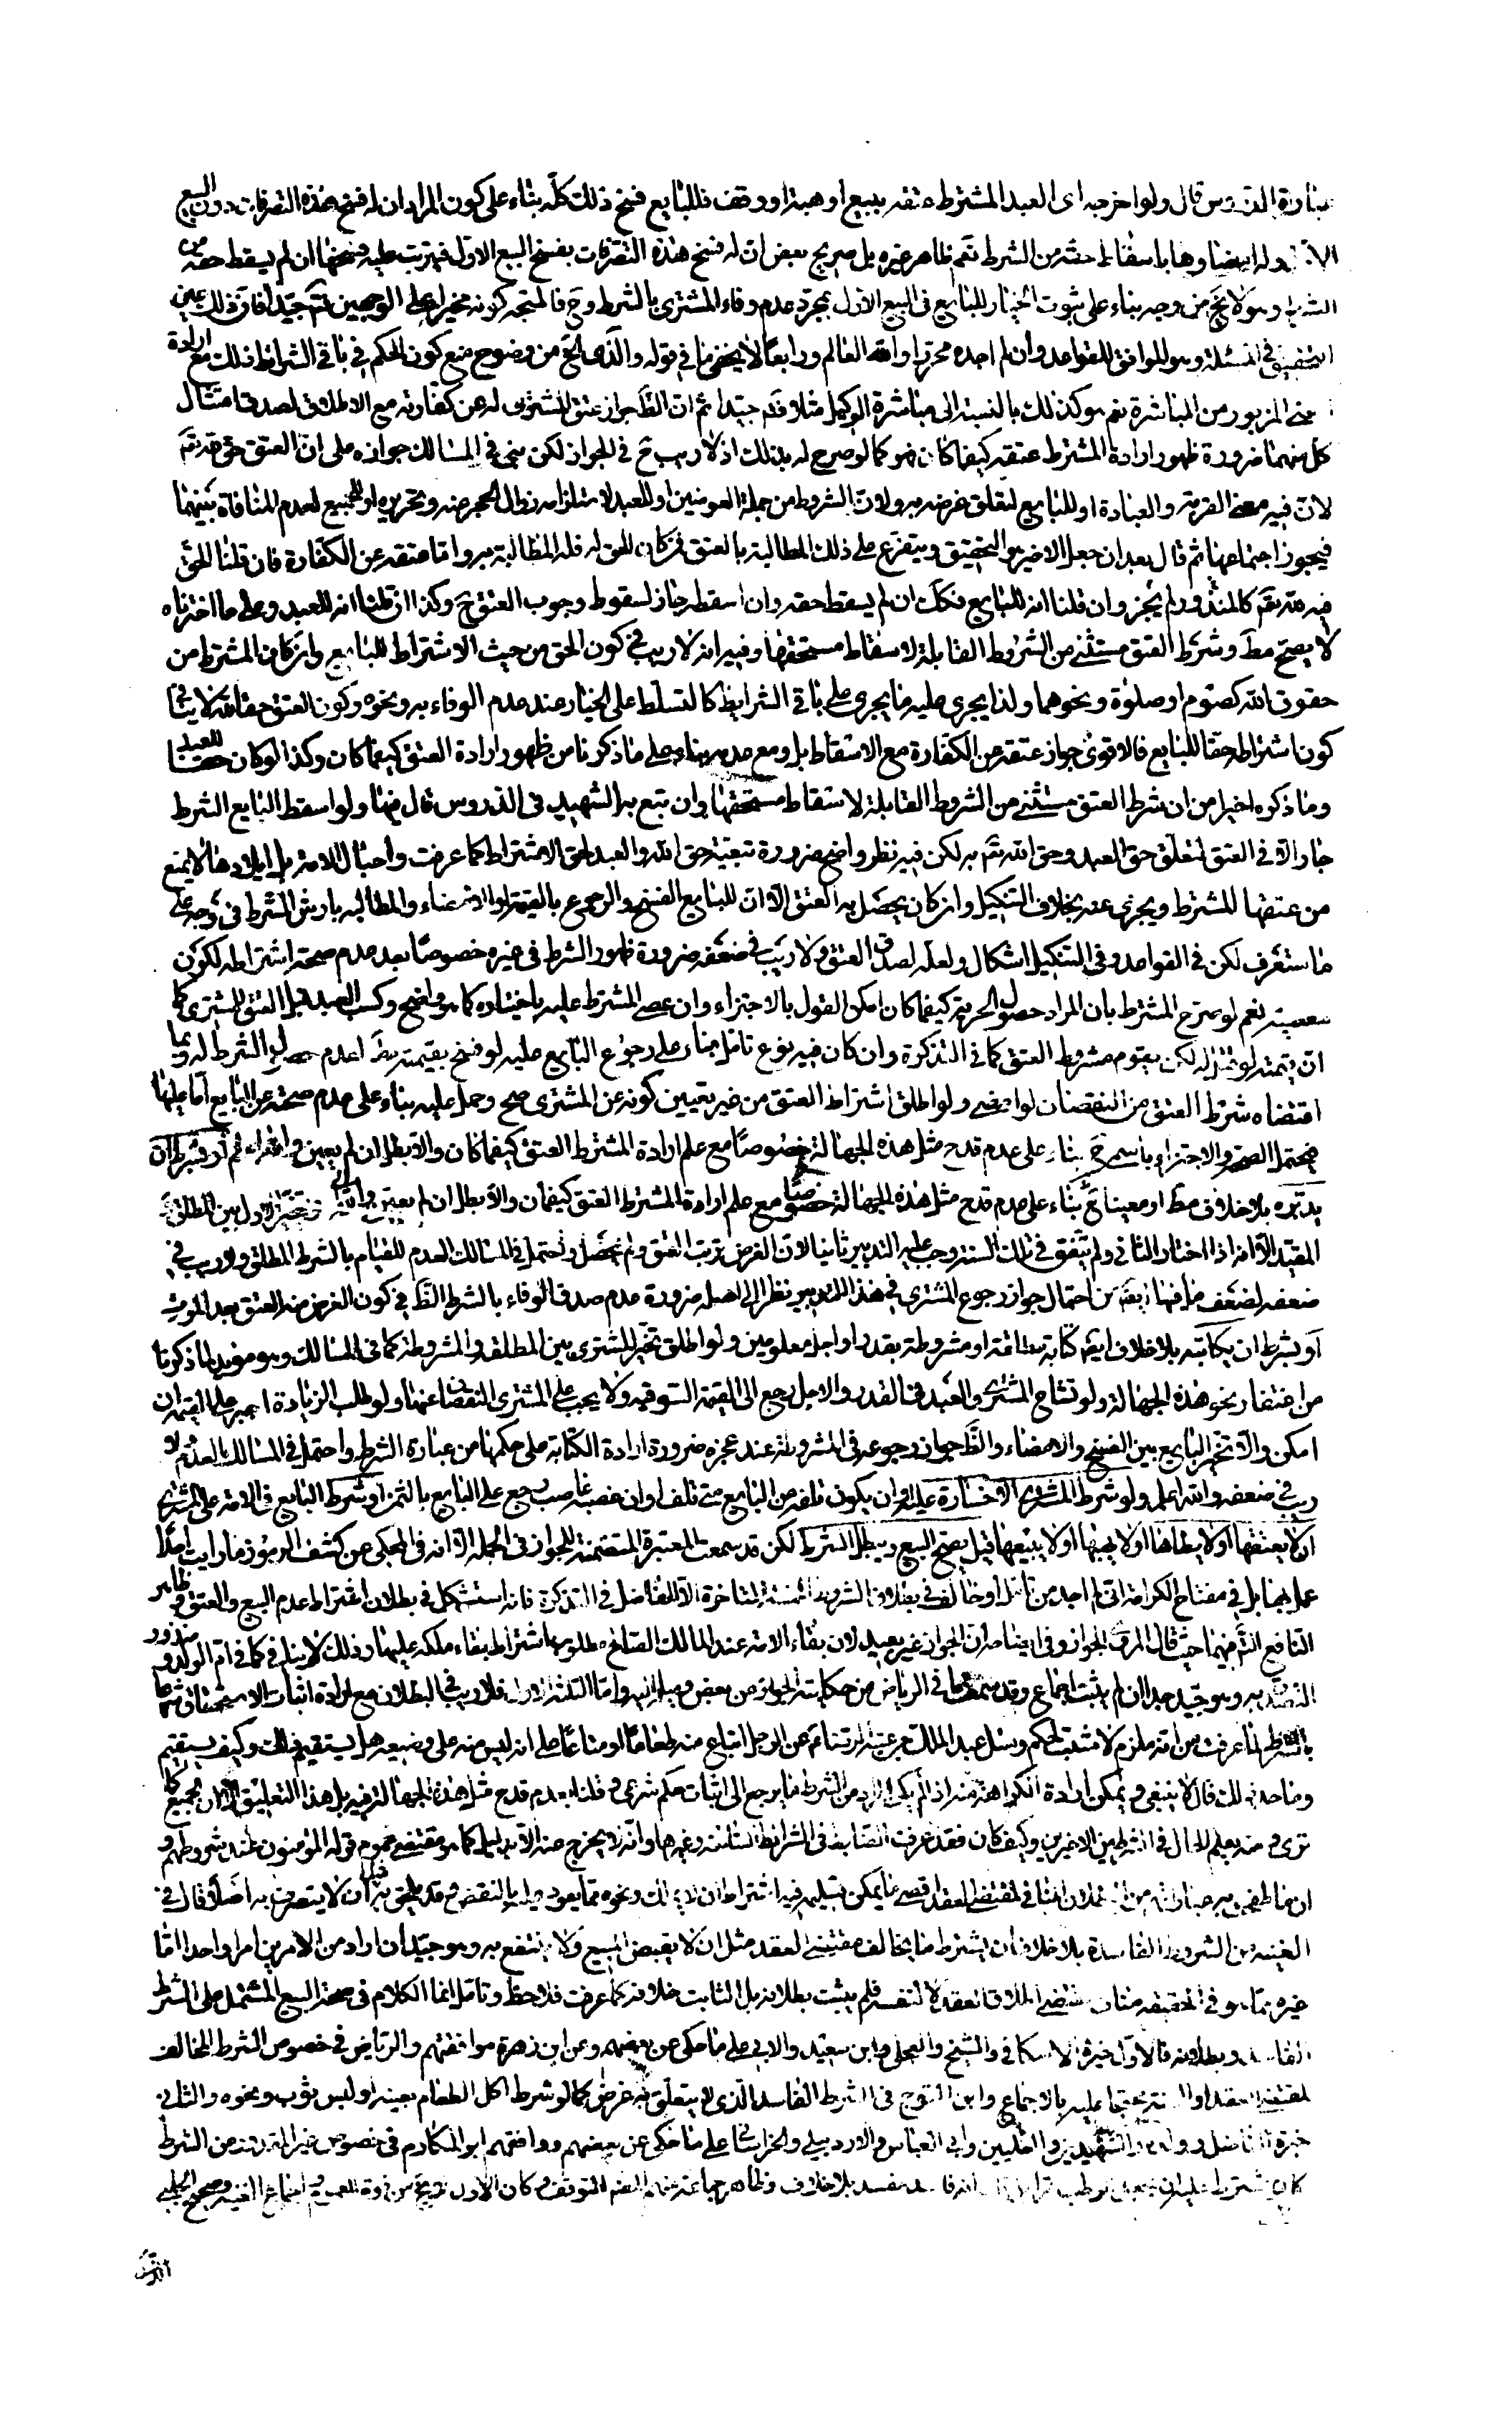 عبارة الدروس قال ولو اخرجه اى العبد المشترط عتقه ببيع او هبة او وقف فللبايع فسخ ذلك كله بناء على كون المراد ان له فسخ هذه التصرفات دون البيع
الا وله امضاؤها باسقاط حقه من الشرط نعم ظاهر غيره بل صريح بعض ان له فسخ هذه التصرفات بفسخ البيع الاول فيترتب عليه فسخها ان لم يسقط حقه من
الشرط وهو لا يخ من وجه بناء على ثبوت الخيار للبايع فى البيع الاول بمجرد عدم وفاء المشترى بالشرط وح فالمتجه كونه مخيرا على الوجهين جيدا فان ذلك عين
التحقيق فى المسئلة وهو الموافق للقواعد وان لم اجده محررا والله العالم ورابعا لا يخفى ما فى قوله والذى الخ من وضوح منع كون الحكم فى باقى الشرائط ذلك مع ارادة
المزبور من المباشرة نعم هو كذلك بالنسبة الى مباشرة الوكيل مثلا جيدا ثم ان الظ جواز عتق المشترى له عن كفارته مع الاطلاق لصدق امتثال
كل منهما ضرورة ظهور ارادة المشترط عتقه كيفما كان فهو كما لو صرح له بذلك اذ لا ريب ح فى الجواز لكن بنى فى المسالك جوازه على ان العتق حق لله تع
لان فيه معنى القربة والعبادة او للبايع لتعلق غرضه به ولان الشروط من جملة العوضين او للعبد لاستلزامه زوال الحجر عنه وتحريره او للجميع لعدم المنافاة بينهما
فيجوز اجتماعها ثم قال بعد ان جعل الاخير هو التحقيق ويتفرع على ذلك المطالبة بالعتق فمن كان الحق له فله المطالبة به واما عتقه عن الكفارة فان قلنا الحق
فيه لله تع كالمنذور لم يجز وان قلنا انه للبايع فكك ان لم يسقط حقه وان اسقط جاز لسقوط وجوب العتق ح وكذا ان قلنا انه للعبد وعلى ما اخترناه
لا يصح مط وشرط العتق مستثنى من الشروط القابلة لاسقاط مستحقها وفيه انه لا ريب فى كون الحق من حيث الاشتراط للبايع وان كان المشترط من
حقوق الله كصوم او صلوة ونحوهما ولذا يجرى عليه ما يجرى على باقى الشرايط كالتسلط على الخيار عند عدم الوفاء به ونحوه وكون العتق حقا لله لا ينافى
كون اشتراطه حقا للبايع فالاقوى جواز عتقه عن الكفارة مع الاسقاط بل ومع عدمه بناء على ما ذكرنا من ظهور ارادة العتق كيفما كان وكذا لو كان حقا للعبد
وما ذكره اخيرا من ان شرط العتق مستثنى من الشروط القابلة لاسقاط مستحقها وان تبع به الشهيد فى الدروس قال فيها ولو اسقط البايع الشرط
جاز الا فى العتق لتعلق حق العبد وحق الله تع به لكن فيه نظر واضح ضرورة تبعية حق الله والعبد لحق الاشتراط كما عرفت واحبال الامة بل ايلادها لا يمنع
من عتقها للمشترط ويجزى عنه بخلاف التنكيل وان كان يحصل به العتق الا ان للبايع الفسخ والرجوع بالقيمة او الامضاء والمطالبة بارش الشرط فى وجه على
ما ستعرف لكن فى القواعد وفى التنكيل اشكال ولعله لصدق العتق ولا ريب فى ضعفه ضرورة ظهور الشرط فى غيره خصوصا بعد عدم صحة اشتراطه لكون
معصية نعم لو صرح المشترط بان المراد حصول الحرية كيفما كان امكن القول بالاجتزاء وان عصى المشترط عليه باختياره كما هو واضح وكسب العبد قبل العتق للمشترى كما
ان قيمته لو قتل له لكن يقوم مشروط العتق كما فى التذكرة وان كان فيه نوع تامل بناء على رجوع البايع عليه لو فسخ بقيمته لعدم حصول الشرط له وبما
اقتضاه شرط العتق من النقصان لو امضى ولو اطلق اشتراط العتق من غير تعيين كونه عن المشترى صح وحمل عليه بناء على عدم صحته عن البايع اما عليها
فيحتمل الصحة والاجتزاء بناء على عدم قدح مثل هذه الجهالة خصوصا مع علم ارادة المشترط العتق كيفما كان والا بطل ان لم يعين
يدبره بلا خلاف مط او معينا بناء على عدم قدح مثل هذه الجهالة خصوصا مع علم ارادة المشترط العتق كيفما كان والا بطل ان لم يعين بين المطلق
المقيد الا انه اذا اختار الثانى ولم يتفق فى تلك السنة وجب عليه التدبير ثانيا لان الغرض ترتب العتق ولم يحصل واحتمل فى المسالك العدم للقيام بالشرط المطلق ولا ريب فى
ضعفه لضعف ما فيها من احتمال جواز رجوع المشترى فى هذا التدبير نظرا الى اصله ضرورة عدم صدق الوفاء بالشرط الظ فى كون الغرض منه العتق بعد الموت
او يشرط ان يكاتبه بلا خلاف ايض كتابة مطلقة او مشروطة بقدر او اجل معلومين ولو اطلق تخير المشترى بين المطلقة والمشروطة كما فى المسالك وهو مؤيد لما ذكرنا
من اغتفار نحو هذه الجهالة ولو تشاح المشترى والعبد فى القدر والاجل رجع الى القيمة السوقية ولا يجب على المشترى النقصان عنها ولو طلب الزيادة اجبر على القيمة ان
امكن والا تخير البايع بين الفسخ والامضاء والظ جواز رجوعه فى المشروطة عند عجزه ضرورة ارادة الكتابة على حكمها من عبارة الشرط واحتمل فى المسالك العدم ولا
ريب فى ضعفه والله اعلم ولو شرط المشترى الا خسارة عليه او ان يكون تلفه من البايع متى تلف او ان غصبه غاصب رجع على البايع بالثمن او شرط البايع فى الامة على المشترى
ان لا يعتقها او لا يطاها او لا يهبها او لا يبيعها قيل يصح البيع ويبطل الشرط لكن قد سمعت المعتبرة المتضمنة للجواز فى الجملة الا انه فى المحكى عن كشف الرموز ما رايت احدا
عمل بها بل فى مفتاح الكرامة انى لم اجد من تامل او خالف فى بطلان الشروط المتاخرة الا الفاضل فى التذكرة فانه استشكل فى بطلان اشتراط عدم البيع والعتق وظاهر
النافع التامل فيهما حيث قال المروى الجواز وفى ان الجواز غير بعيد لان بقاء الامة عند المالك الصالح مطلوب فاشتراط بقاء ملكه عليها وذلك لا ينافى كما فى ام الولد ومنذور
التصدق به وهو جيد جدا ان لم يثبت اجماع وقد سمعت ما فى الرياض من حكاية الجواز عن بعض وميله اليه واما الثلثة الاول فلا ريب فى البطلان مع ارادة اثبات الاستحقاق شرعا
بالشرط لما عرفت من انه ملزم لا مثبت لحكم وسئل عبد الملك بن عتبة الرضا ع عن الرجل ابتاع منه طعاما او متاعا على ان ليس منه على وضيعة هل يستقيم ذلك وكيف يستقيم
وما حد ذلك قال لا ينبغى ويمكن ارادة الكراهة منه اذا لم يكن المراد من الشرط ما يرجع الى اثبات حكم شرعى وقلنا بعدم قدح مثل هذه الجهالة فيه بل هذا التعليق الان بجميع كما
ترى ومنه يعلم الحال فى الشرطين الاخيرين وكيف كان فقد عرفت الضابط فى الشرائط السائغة وغيرها وانه لا يخرج عنه الا بدليل كما هو مقتضى عموم قوله المؤمنون عند شروطهم و
ان ما طفحت به عباراتهم من بطلان المنافى لمقتضى العقد اقصى ما يمكن تسليمه فيه اشتراط ان لا يملك ونحوه مما يعود عليه بالنقض وقد يلحق به قيل ان لا يتصرف به اصلا قال فى
الغنية من الشروط الفاسدة بلا خلاف ان يشترط ما يخالف مقتضى العقد مثل ان لا يقبض المبيع ولا ينتفع به وهو جيد ان اراد من الامرين امرا واحدا اما
غيره مما هو فى الحقيقة مناف مقتضى اطلاق العقد لا لنفسه فلم يثبت بطلانه بل الثابت خلافه كما عرفت فلاحظ وتامل انما الكلام فى صحة البيع المشتمل على الشرط
الفاسد وبطلانه فالاول خيرة الاسكافى والشيخ والعجلى وابن سعيد والابى على ما حكى عن بعضهم وعن ابن زهرة موافقتهم والرياض فى خصوص الشرط المخالف
لمقتضى العقد او السنة محتجا عليه بالاجماع وابن المتوج فى الشرط الفاسد الذى لا يتعلق به غرض كما لو شرط اكل الطعام بعينه او لبس ثوب ونحوه والثانى
خيرة الفاضل وولده والشهيدين والعليين وابى العباس والاردبيلى والخراسانى على ما حكى عن بعضهم ووافقهم ابو المكارم فى خصوص غير المقدور من الشرط
كان يشترط عليه ان يجعل رطب تمرا انه فاسد مفسد بلا خلاف وظاهر جماعة التوقف وكان الاول اجماع الغنية وصحيح الحلبى